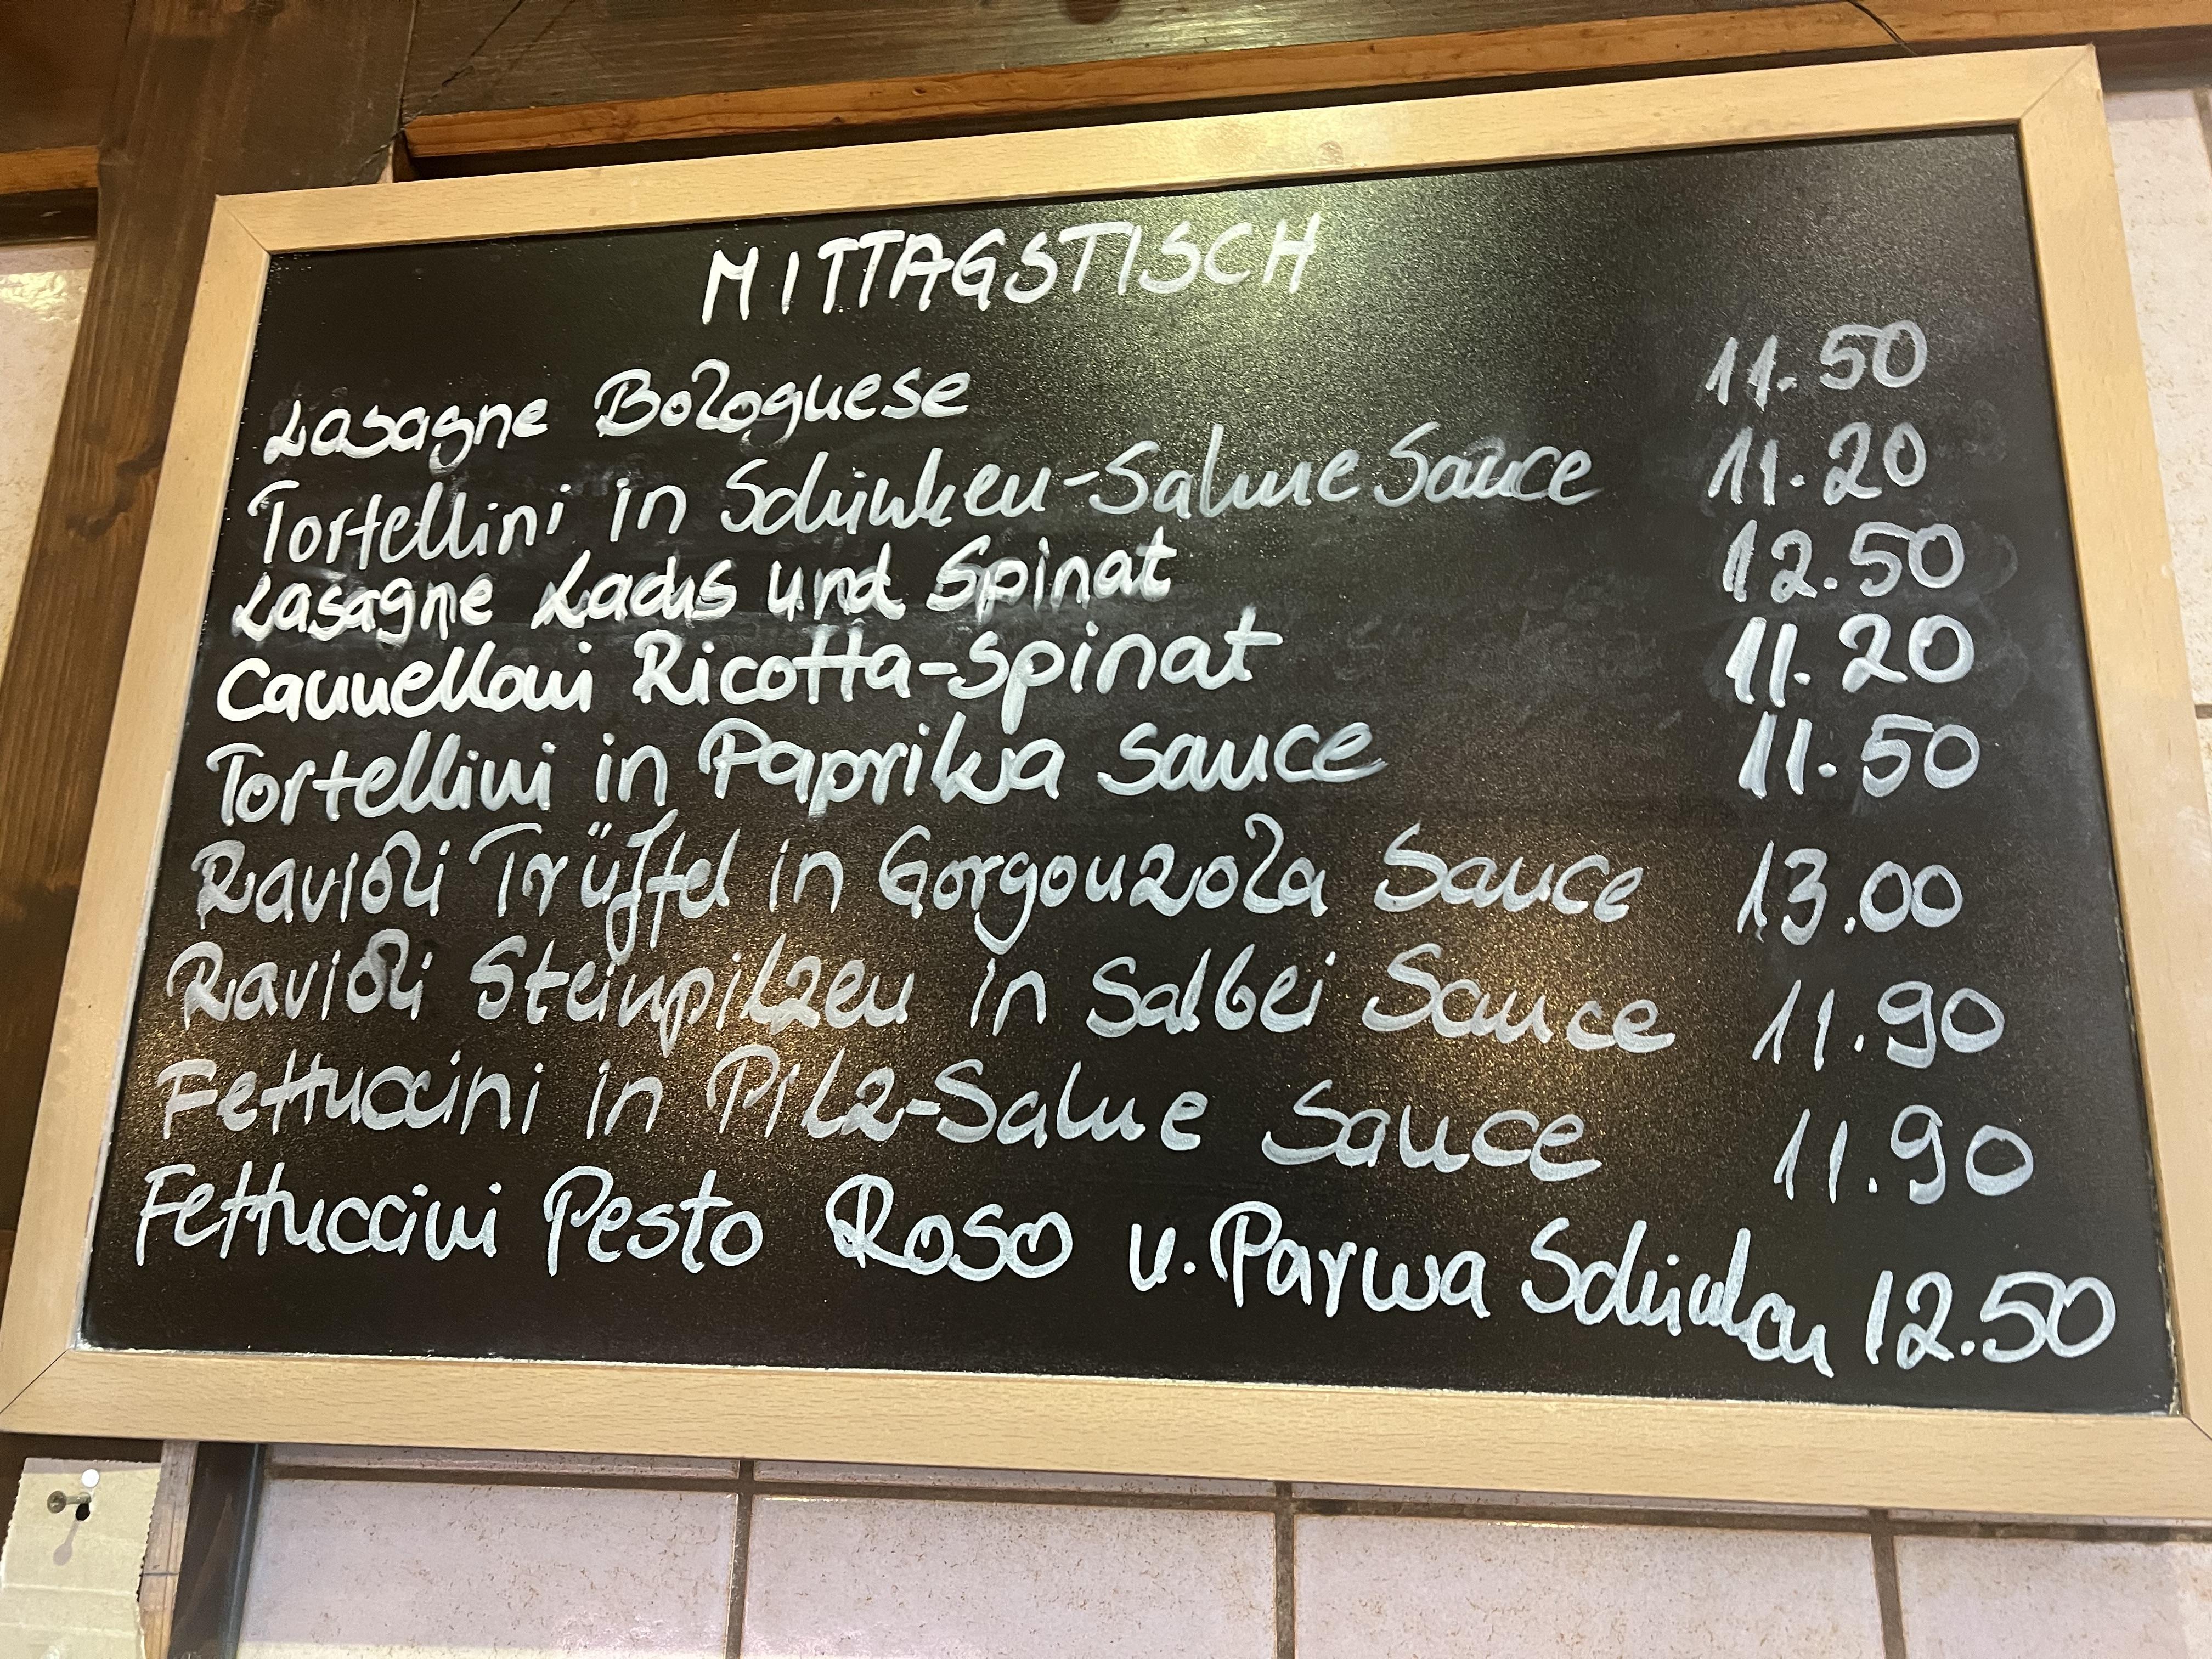 MITTAGSTISCH
Lasagne Bolognese 11.50
Tortellini in Schinken-Sahne Sauce 11.20
Lasagne Lachs und Spinat 12.50
Cannelloni Ricotta-Spinat 11.20
Tortellini in Paprika Sauce 11.50
Ravioli Trüffel in Gorgonzola Sauce 13.00
Ravioli Steinpilzen in Salbei Sauce 11.90
Fettuccini in Pilz-Sahne Sauce 11.90
Fettuccini Pesto Roso u. Parma Schinken 12.50